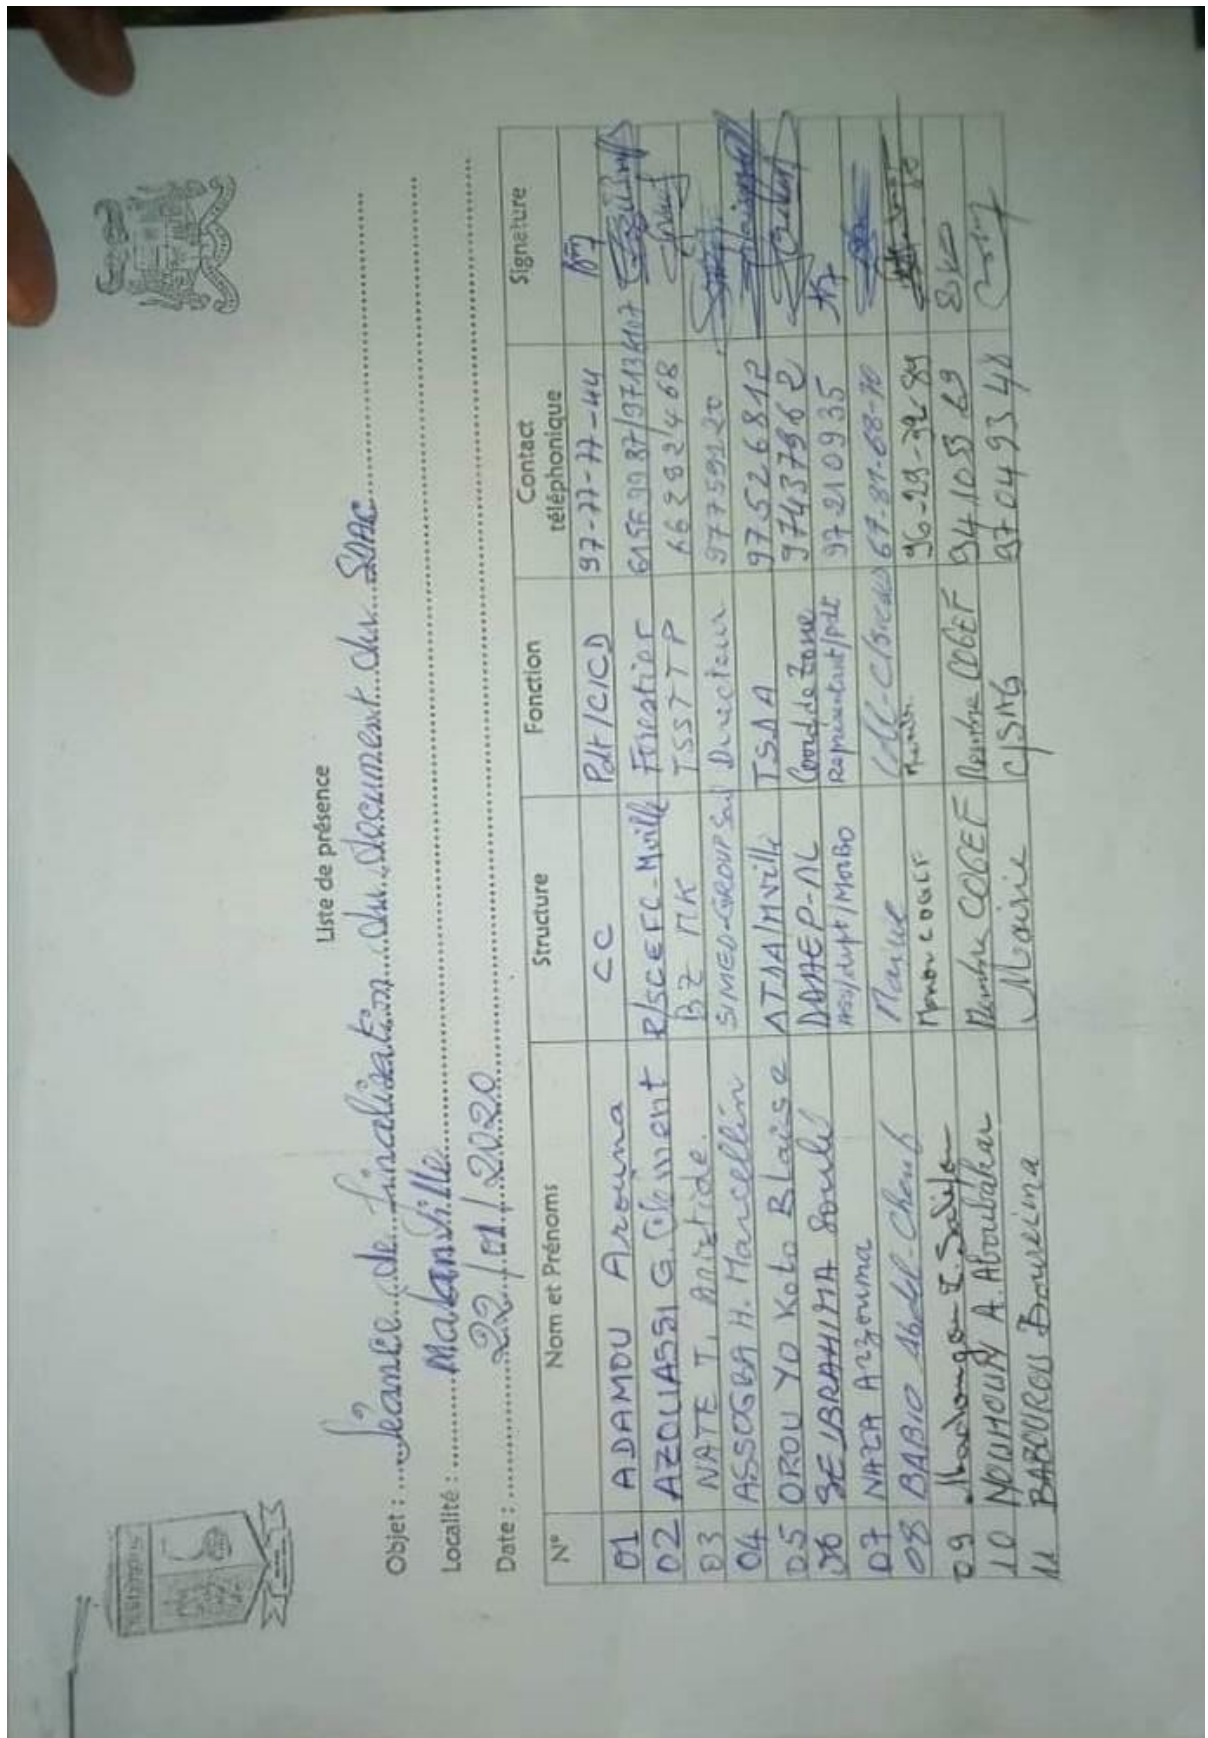 Liste de présence
Objet : Séance de finalisation du document du SDAC
Localité : Malanville
Date : 22/01/2020
N° Nom et Prénoms Structure Fonction Contact téléphonique Signature
01 ADAMOU Arouna CC Pdt/CICD 97-77-77-44
02 AZOUASSI G. Clément R/SCEFC-Mville Forestier
03 NATE T. Aristide BZ MK TSSTTP 66282468
04 ASSOGBA H. Marcellin SIMED-GROUP Sarl Directeur 97759120
05 OROU YO Koto Blaise ATDA/Mville TSDA 97526812
06 SEIBRAHIMA Soulé DDAEP-AL Coord de Zone 97437962
07 NAZA Arzouma Représentant/pdt 97210935
08 BABIO Abdel-Cherif Mairie 67-81-68-70
09 Membre 96-29-39-89
10 NOUHOUN A. Aboubakar Membre COGEF Membre COGEF
11 BABOUROU Boureima Mairie C/SAG 97049348